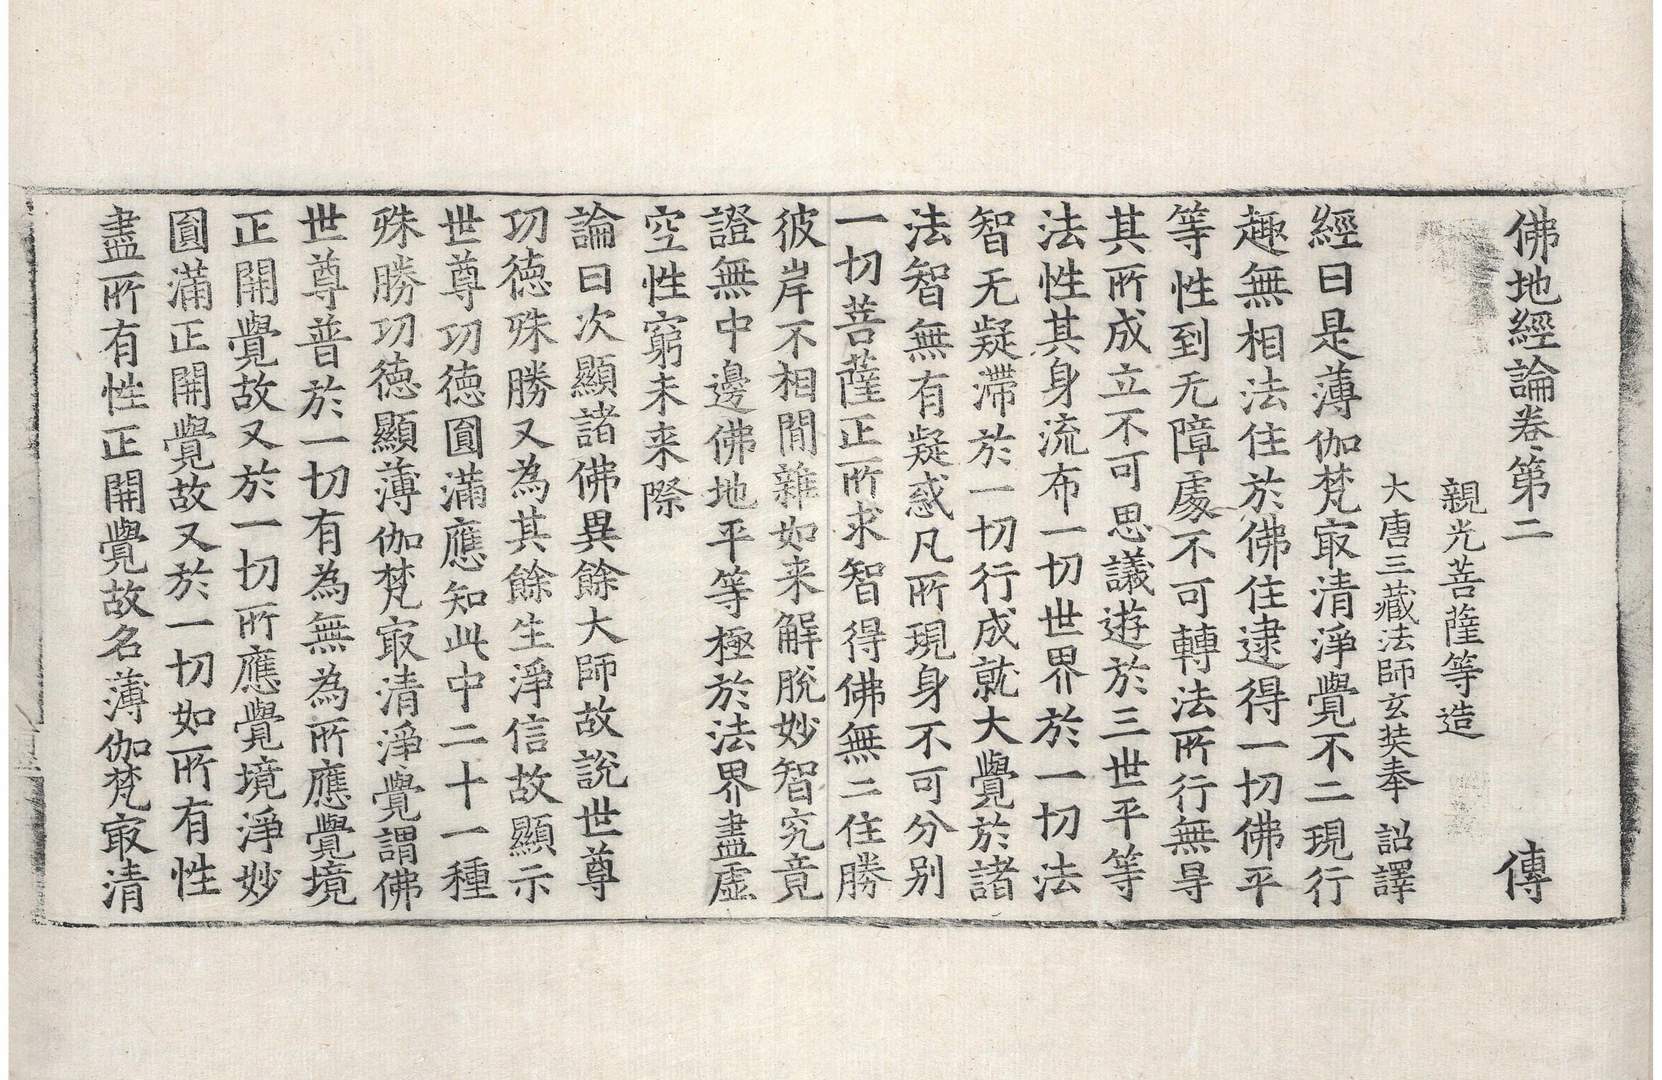 佛地經論卷第二 傳
親光菩薩等造
大唐三藏法師玄奘奉 詔譯
經曰是薄伽梵㝡清淨覺不二現行
趣無相法住於佛住逮得一切佛平
等性到无障處不可轉法所行無㝵
其所成立不可思議遊於三世平等
法性其身流布一切世界於一切法
智无疑滯於一切行成就大覺於諸
法智無有疑惑凡所現身不可分別
一切菩薩正所求智得佛無二住勝
彼岸不相間雜如来解脫妙智究竟
證無中邊佛地平等極於法界盡虛
空性窮未来際
論曰次顯諸佛異餘大師故說世尊
功德殊勝又為其餘生淨信故顯示
世尊功德圓滿應知此中二十一種
殊勝功德顯薄伽梵㝡清淨覺謂佛
世尊普於一切有為無為所應覺境
正開覺故又於一切所應覺境淨妙
圓滿正開覺故又於一切如所有性
盡所有性正開覺故名薄伽梵㝡清